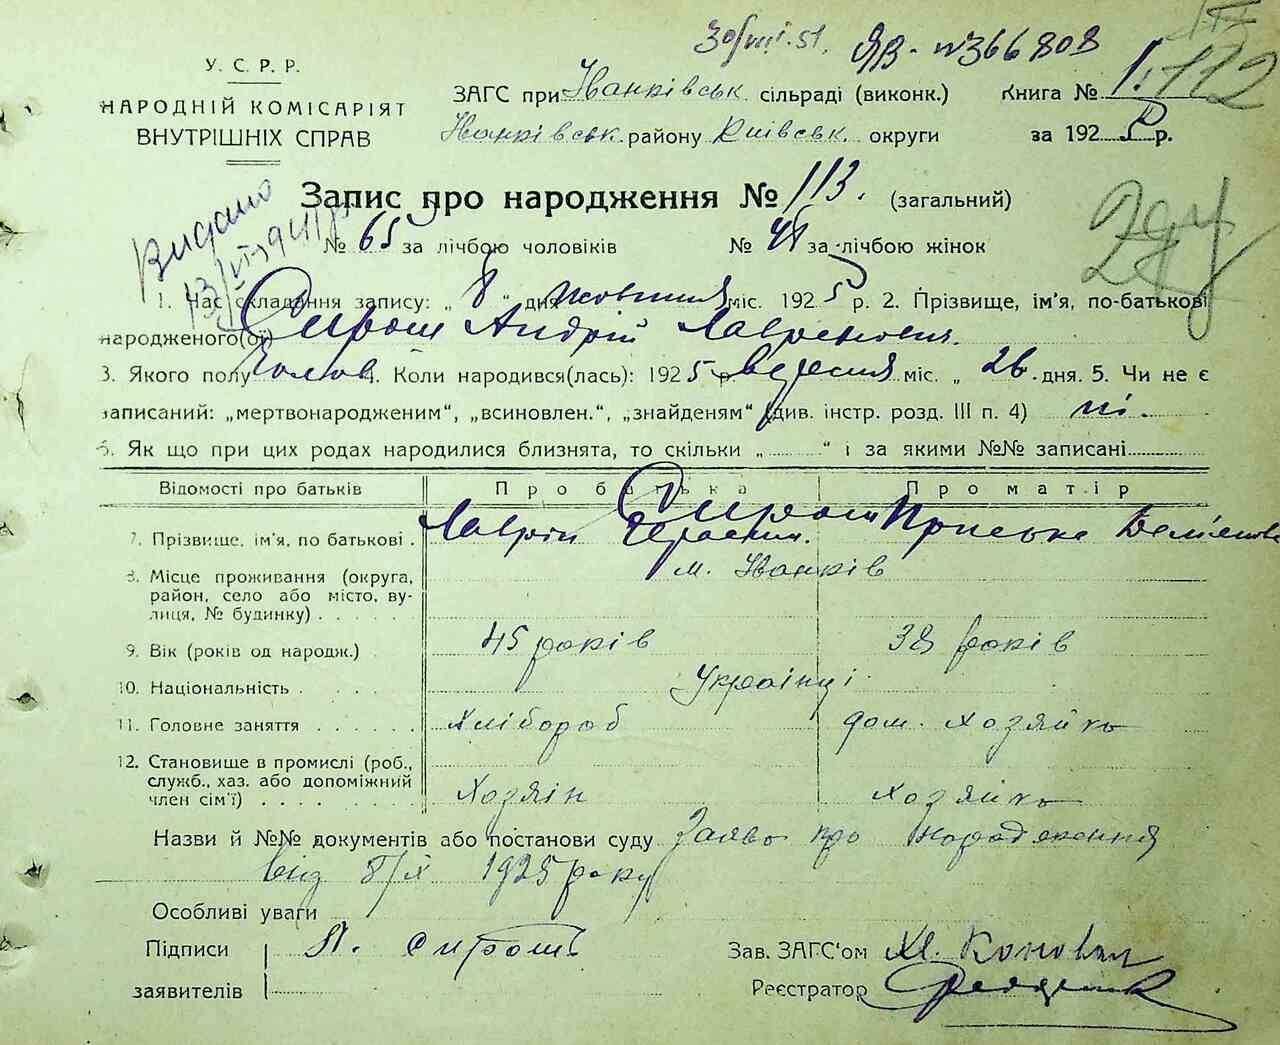 30/VIII.51. ЯВ-№366808
У. С. Р. Р.
НАРОДНІЙ КОМІСАРІЯТ
ВНУТРІШНІХ СПРАВ
ЗАГС при Іванківськ. сільраді (виконк.) Книга № 1. 112
Іванківськ. району Київськ. округи за 1925 р.
Запис про народження № 113. (загальний)
№ 65 за лічбою чоловіків № 48 за лічбою жінок
Видано
1. Час складання запису: „ 8 " дня жовтня міс. 1925 р. 2. Прізвище, ім'я, по-батькові
народженого(ої) Сирош Андрій Лавренович.
3. Якого полу чолов. 4. Коли народився(лась): 1925 р. вересня міс. „ 26 . дня. 5. Чи не є
записаний: „мертвонародженим", „всиновлен.", „знайденям" (див. інстр. розд. III п. 4) ні.
6. Як що при цих родах народилися близнята, то скільки „ " і за якими №№ записані
Відомості про батьків Про батька Про матір
7. Прізвище, ім'я, по батькові . Сирош Лаврін Герасим. Приська
8. Місце проживання (округа, м. Іванків
район, село або місто, ву-
лиця, № будинку)
9. Вік (років од народж.) 45 років 38 років
10. Національність Українці
11. Головне заняття Хлібороб дом. хозяйка
12. Становище в промислі (роб.,
служб., хаз. або допоміжний
член сім'ї) Хозяін хозяйка
Назви й №№ документів або постанови суду Заява про народження
від 8/X 1925 року
Особливі уваги
Підписи Л. Сирош Зав. ЗАГС'ом М. Коновал
заявителів Реєстратор